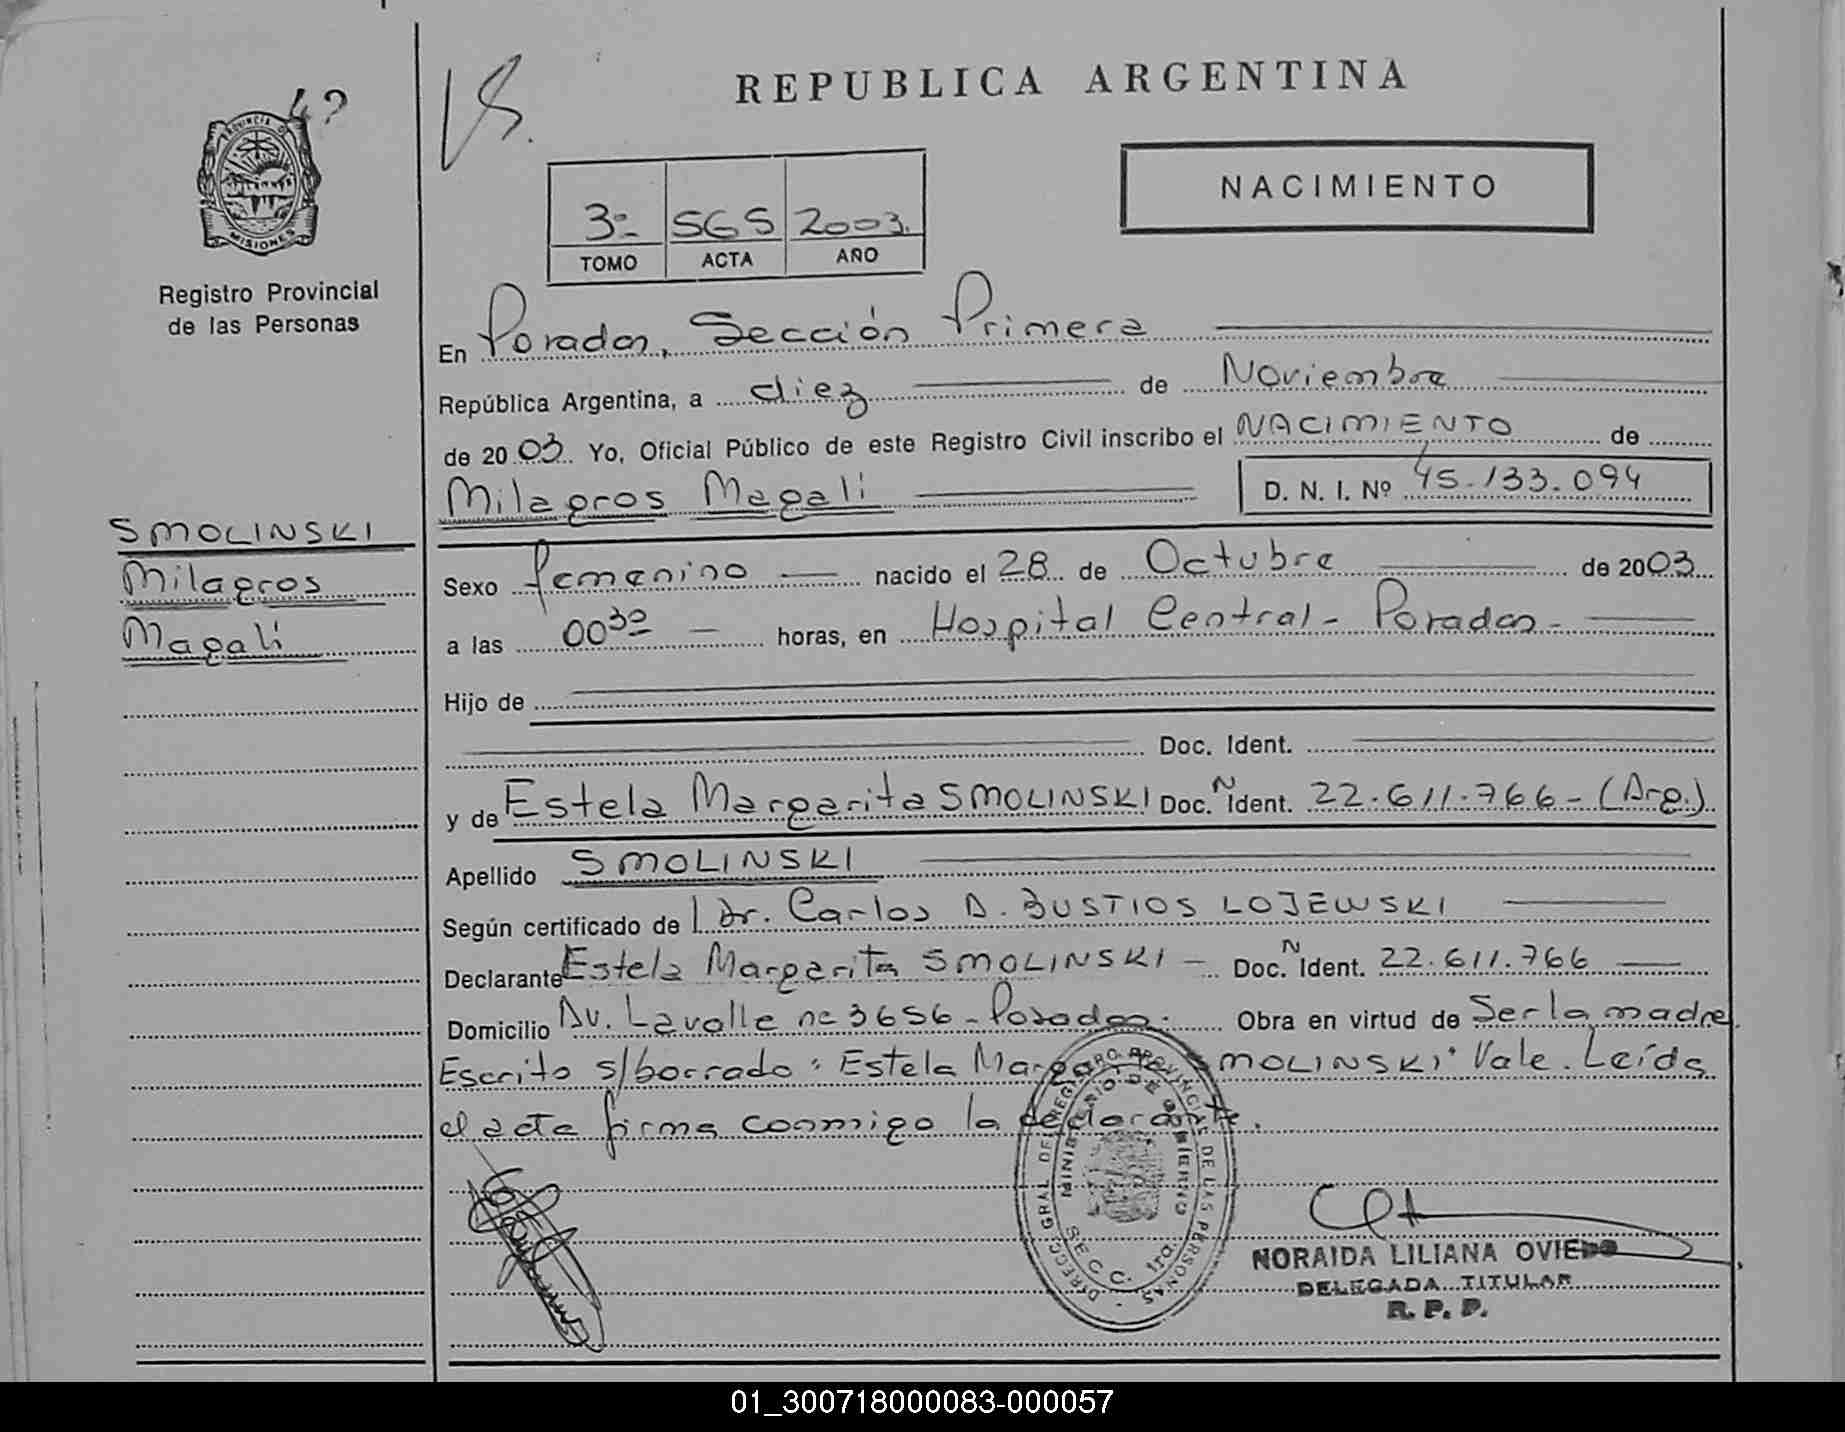 4?
V8.
REPUBLICA ARGENTINA
PROVINCIA DE
MISIONES
Registro Provincial
de las Personas
NACIMIENTO
3º 565 2003.
TOMO ACTA AÑO
En Posadas, Sección Primera
República Argentina, a diez de Noviembre
de 2003 Yo, Oficial Público de este Registro Civil inscribo el NACIMIENTO de
Milagros Magali D. N. I. Nº 45.133.094
SMOLINSKI
Milagros
Magali
Sexo femenino nacido el 28 de Octubre de 2003
a las 00³⁰ horas, en Hospital Central - Posadas -
Hijo de
Doc. Ident.
y de Estela Margarita SMOLINSKI Doc. N Ident. 22.611.766 - (Arg.)
Apellido SMOLINSKI
Según certificado de Dr. Carlos D. BUSTIOS LOJEWSKI
Declarante Estela Margarita SMOLINSKI - Doc. N Ident. 22.611.766
Domicilio Av. Lavalle nº 3656 - Posadas. Obra en virtud de Ser la madre
Escrito s/borrado: Estela Margarita SMOLINSKI: Vale. Leída
el acta firma conmigo la declarante.
DIRECC. GRAL DEL REGISTRO PROVINCIAL DE LAS PERSONAS
MINISTERIO DE GOBIERNO
SECC. 1ra.
NORAIDA LILIANA OVIEDO
DELEGADA TITULAR
R. P. P.
01_300718000083-000057